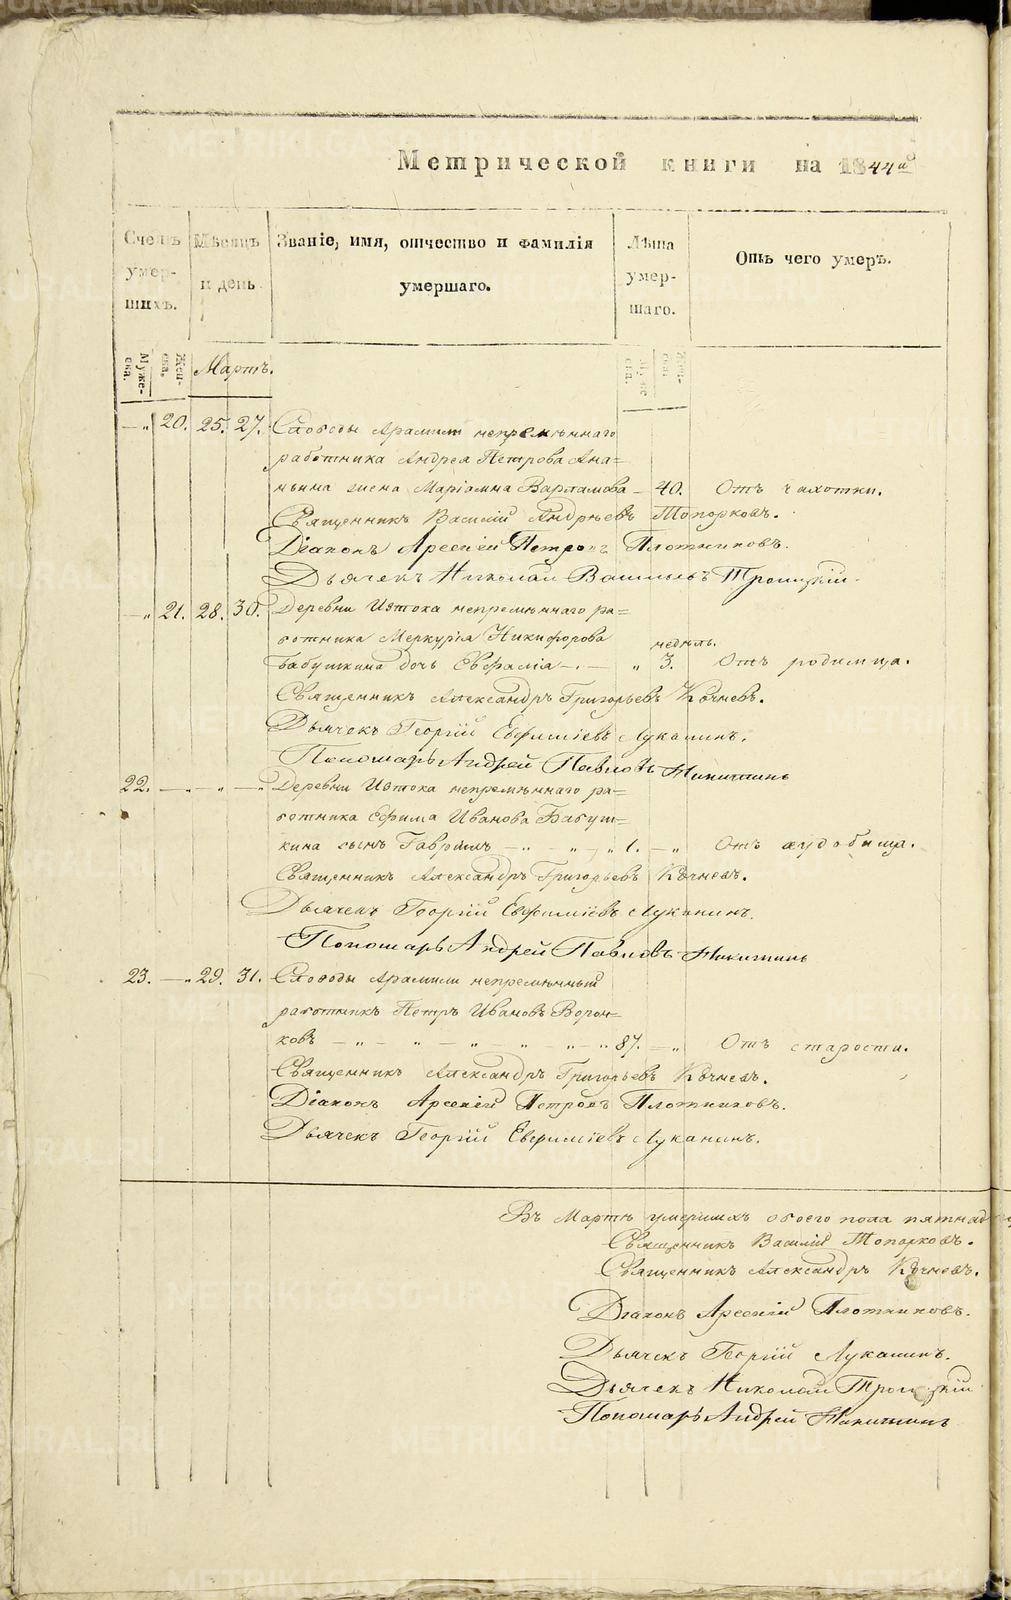 Метрической книги на 1844й
Счетъ умер- шихъ.
Мѣсяцъ и день
Званіе, имя, отчество и фамилія умершаго.
Лѣта умер- шаго.
Отъ чего умеръ.
Муже- ска.
Жен- ска.
Мартъ.
Муже- ска.
Жен- ска.
— „ 20. 25. 27. Слободы Арамили непремѣннаго
работника Андрея Петрова Ана=
ньина жена Маріамна Варламова — 40. Отъ чахотки.
Священникъ Василій Андреевъ Топорковъ.
Діаконъ Арсеній Петровъ Плотниковъ.
Дьячекъ Николай Васильевъ Троицкій.
— „ 21. 28. 30. Деревни Истока непремѣннаго ра=
ботника Меркурія Никифорова недѣль.
Бабушкина дочь Евфалія — . — „ 3. Отъ родимца.
Священникъ Александръ Григорьевъ Кочневъ.
Дьячекъ Георгій Евфиміевъ Луканинъ.
Пономарь Андрей Павловъ Никитинъ
22. — „ — „ — „ Деревни Истока непремѣннаго ра=
ботника Ефима Иванова Бабуш=
кина сынъ Гавріилъ — „ — „ — „ 1. — „ Отъ худобища.
Священникъ Александръ Григорьевъ Кочневъ.
Дьячекъ Георгій Евфиміевъ Луканинъ.
Пономарь Андрей Павловъ Никитинъ
23. — „ 29. 31. Слободы Арамили непремѣнный
работникъ Петръ Ивановъ Ворон=
ковъ — „ — „ — „ — „ — „ 87. — „ Отъ старости.
Священникъ Александръ Григорьевъ Кочневъ.
Діаконъ Арсеній Петровъ Плотниковъ.
Дьячекъ Георгій Евфиміевъ Луканинъ.
Въ Мартѣ умершихъ обоего пола пятнад
Священникъ Василій Топорковъ.
Священникъ Александръ Кочневъ.
Діаконъ Арсеній Плотниковъ.
Дьячекъ Георгій Луканинъ.
Дьячекъ Николай Троицкій
Пономарь Андрей Никитинъ